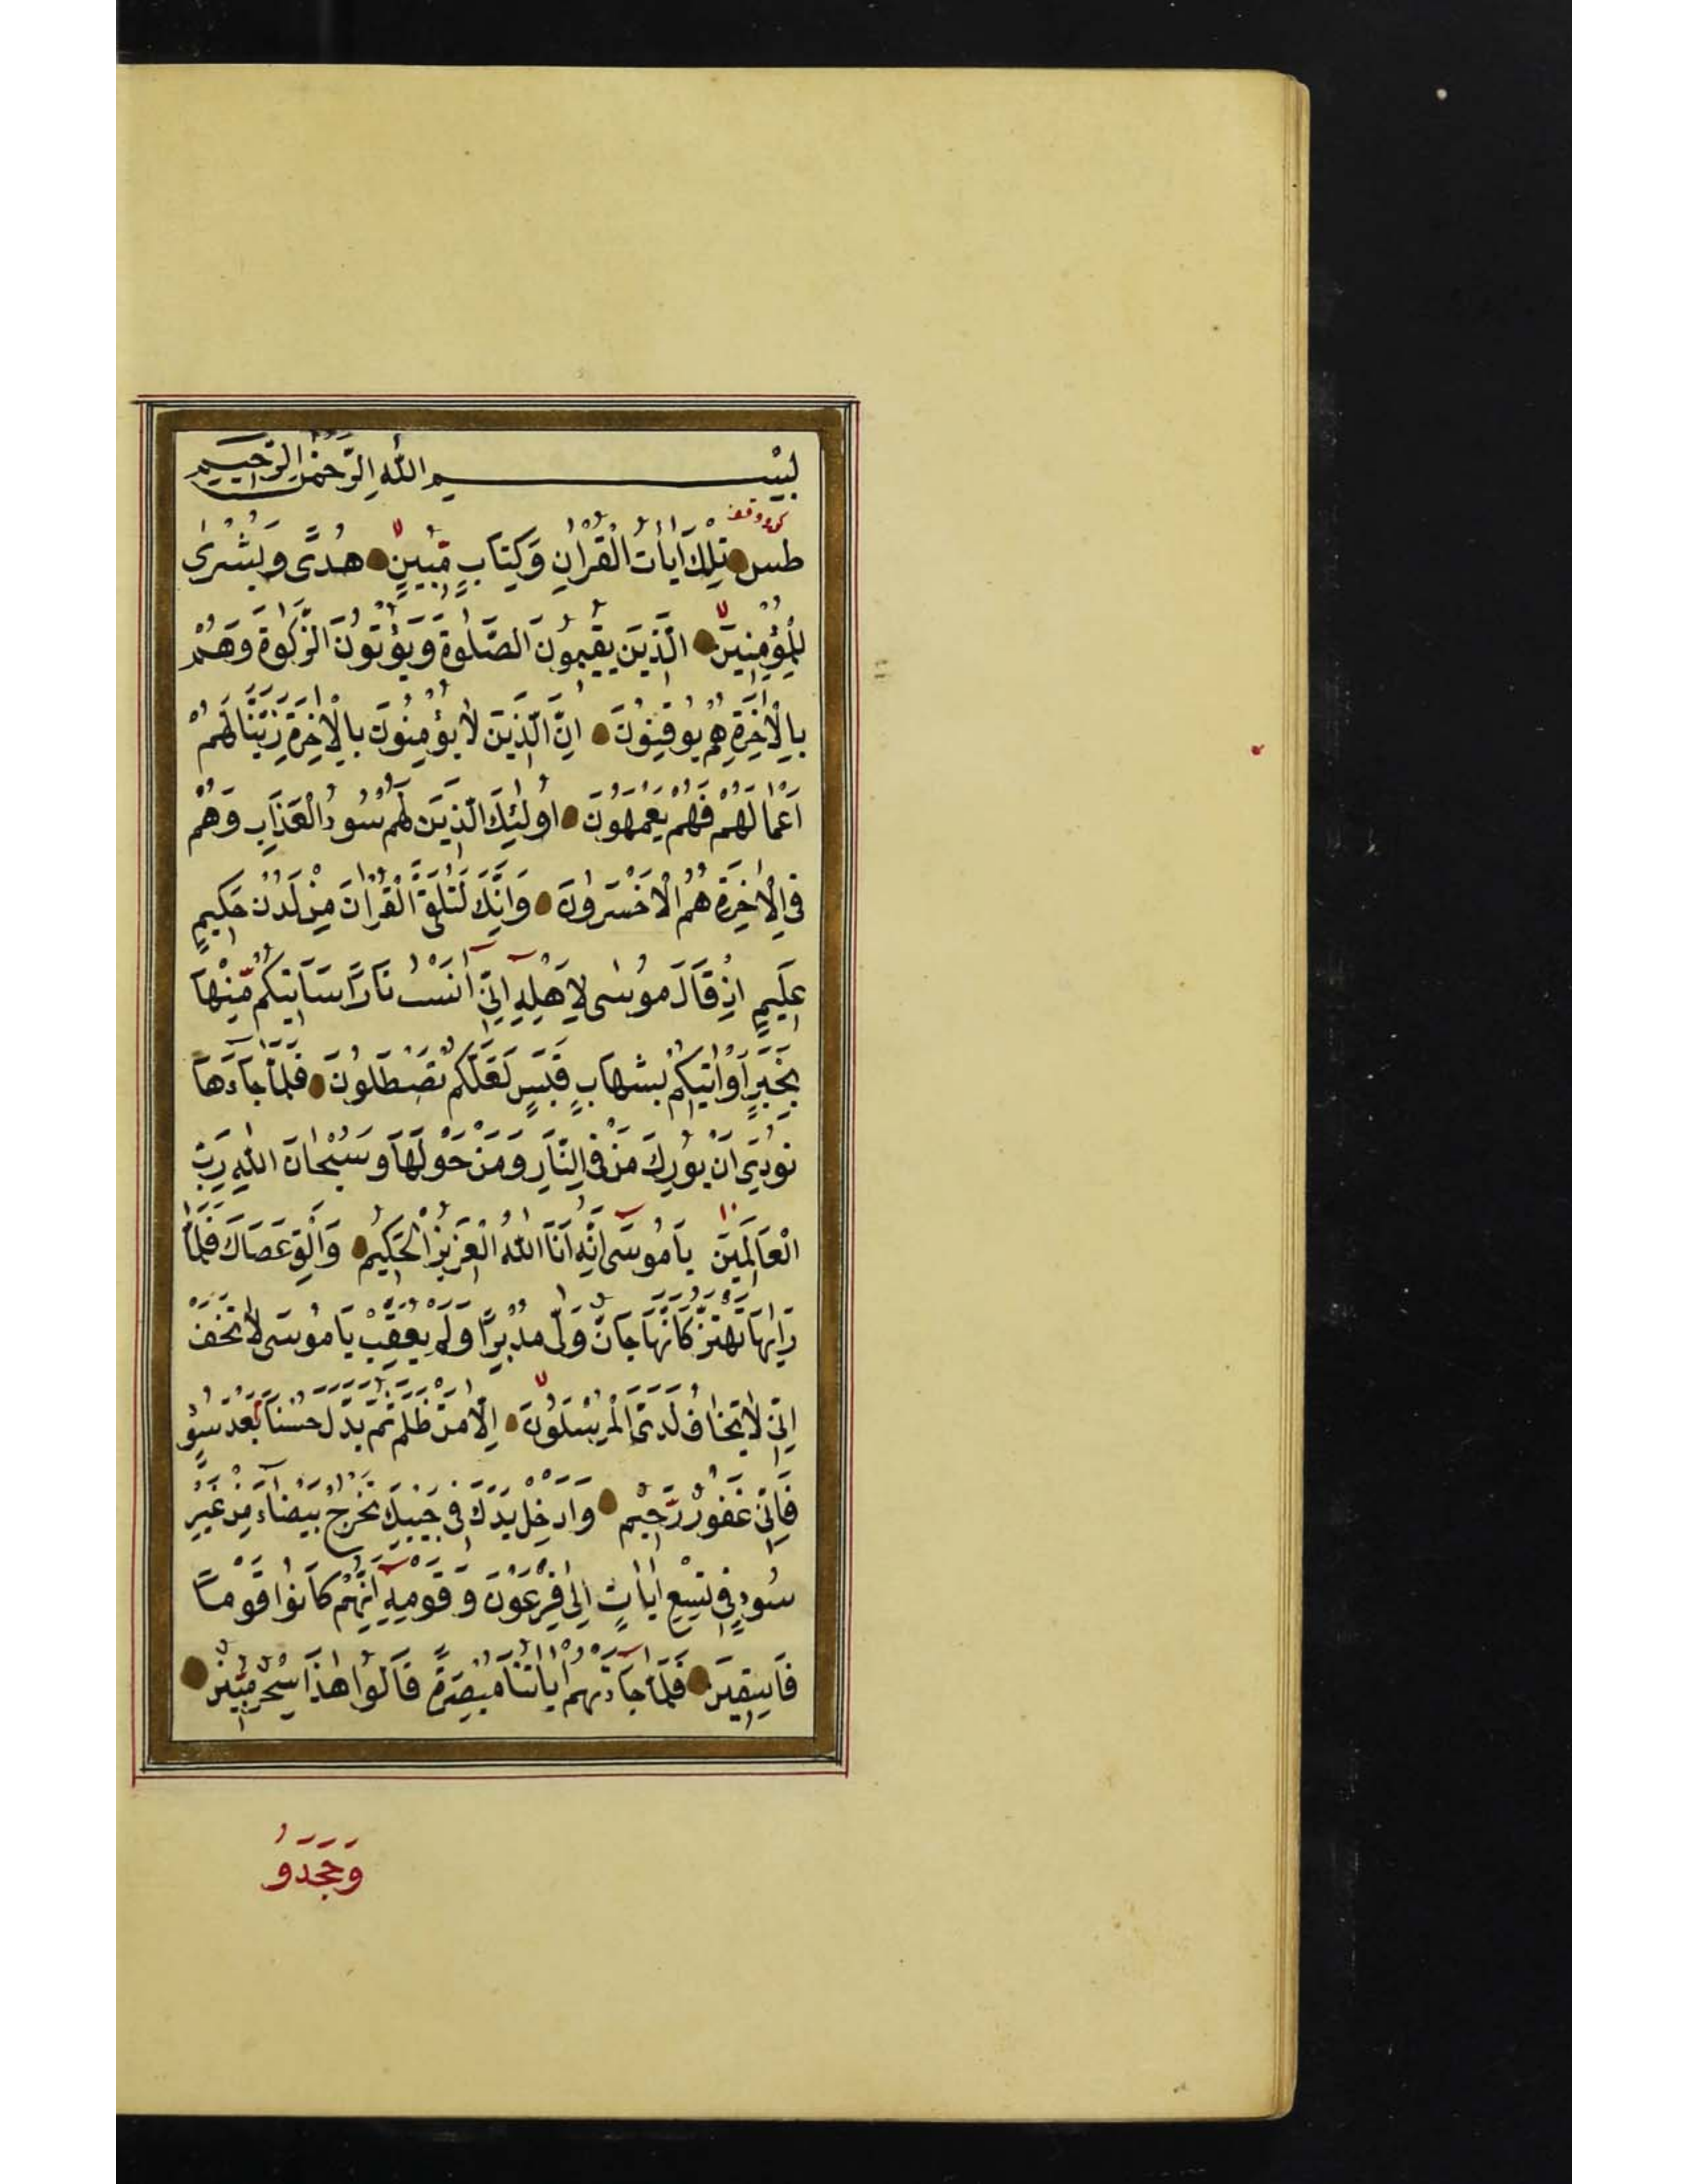 بِسْمِ اللّٰهِ الرَّحْمٰنِ الرَّحِيمِ
طس تِلْكَ اٰيَاتُ الْقُرْاٰنِ وَكِتَابٍ مُّبِينٍ هُدًى وَبُشْرٰى
لِلْمُؤْمِنِينَ الَّذِينَ يُقِيمُونَ الصَّلٰوةَ وَيُؤْتُونَ الزَّكٰوةَ وَهُمْ
بِالْاٰخِرَةِ هُمْ يُوقِنُونَ اِنَّ الَّذِينَ لَا يُؤْمِنُونَ بِالْاٰخِرَةِ زَيَّنَّا لَهُمْ
اَعْمَالَهُمْ فَهُمْ يَعْمَهُونَ اُولٰئِكَ الَّذِينَ لَهُمْ سُوءُ الْعَذَابِ وَهُمْ
فِي الْاٰخِرَةِ هُمُ الْاَخْسَرُونَ وَاِنَّكَ لَتُلَقَّى الْقُرْاٰنَ مِنْ لَدُنْ حَكِيمٍ
عَلِيمٍ اِذْ قَالَ مُوسٰى لِاَهْلِهِ اِنِّي اٰنَسْتُ نَارًا سَاٰتِيكُمْ مِّنْهَا
بِخَبَرٍ اَوْ اٰتِيكُمْ بِشِهَابٍ قَبَسٍ لَعَلَّكُمْ تَصْطَلُونَ فَلَمَّا جَاءَهَا
نُودِيَ اَنْ بُورِكَ مَنْ فِي النَّارِ وَمَنْ حَوْلَهَا وَسُبْحَانَ اللّٰهِ رَبِّ
الْعَالَمِينَ يَا مُوسٰى اِنَّهُ اَنَا اللّٰهُ الْعَزِيزُ الْحَكِيمُ وَاَلْقِ عَصَاكَ فَلَمَّا
رَاٰهَا تَهْتَزُّ كَاَنَّهَا جَانٌّ وَلّٰى مُدْبِرًا وَلَمْ يُعَقِّبْ يَا مُوسٰى لَا تَخَفْ
اِنِّي لَا يَخَافُ لَدَيَّ الْمُرْسَلُونَ اِلَّا مَنْ ظَلَمَ ثُمَّ بَدَّلَ حُسْنًا بَعْدَ سُوءٍ
فَاِنِّي غَفُورٌ رَّحِيمٌ وَاَدْخِلْ يَدَكَ فِي جَيْبِكَ تَخْرُجْ بَيْضَاءَ مِنْ غَيْرِ
سُوءٍ فِي تِسْعِ اٰيَاتٍ اِلٰى فِرْعَوْنَ وَقَوْمِهِ اِنَّهُمْ كَانُوا قَوْمًا
فَاسِقِينَ فَلَمَّا جَاءَتْهُمْ اٰيَاتُنَا مُبْصِرَةً قَالُوا هٰذَا سِحْرٌ مُّبِينٌ
وَجَحَدُوا